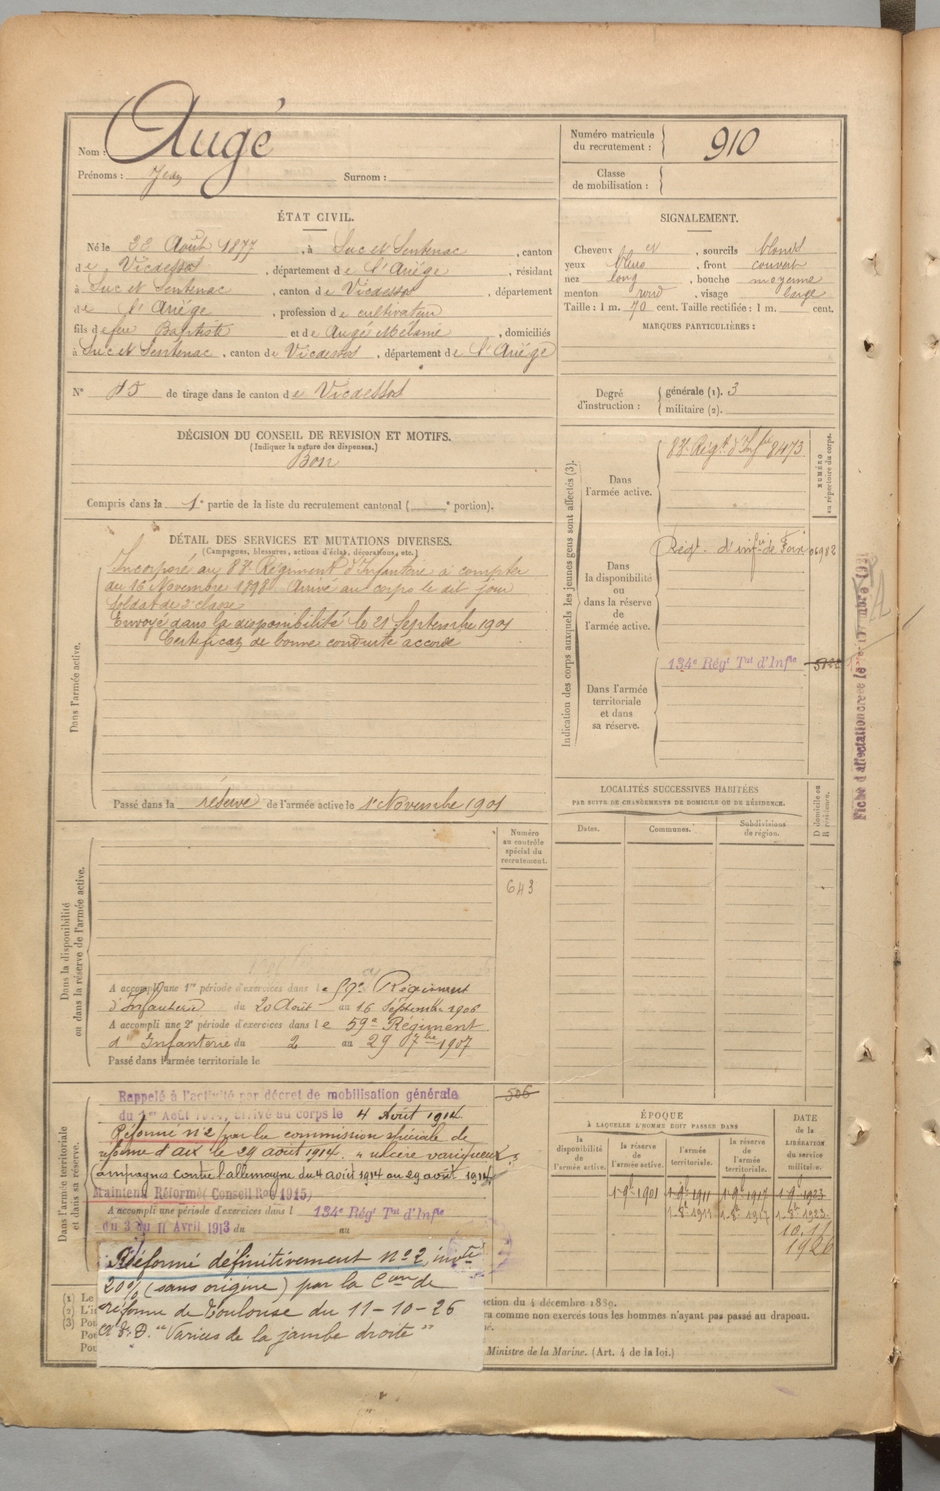 Nom : Augé
Prénoms : Jean Surnom :
Numéro matricule
du recrutement : 910
Classe
de mobilisation :
ÉTAT CIVIL.
Né le 22 Août 1877, à Suc et Sentenac, canton
de Vicdessos, département de l'Ariège, résidant
à Suc et Sentenac, canton de Vicdessos, département
de l'Ariège, profession de cultivateur
fils de feu Baptiste et de Augé Mélanie, domiciliés
à Suc et Sentenac, canton de Vicdessos, département de l'Ariège
N° 15 de tirage dans le canton de Vicdessos
SIGNALEMENT.
Cheveux et, sourcils blonds
yeux bleus, front couvert
nez long, bouche moyenne
menton rond, visage large
Taille : 1 m. 70 cent. Taille rectifiée : 1 m. cent.
MARQUES PARTICULIÈRES :
Degré
d'instruction :
générale (1). 3
militaire (2).
DÉCISION DU CONSEIL DE REVISION ET MOTIFS.
(Indiquer la nature des dispenses.)
Bon
Compris dans la 1e partie de la liste du recrutement cantonal ( e portion).
DÉTAIL DES SERVICES ET MUTATIONS DIVERSES.
(Campagnes, blessures, actions d'éclat, décorations, etc.)
Dans l'armée active.
Incorporé au 83e Régiment d'Infanterie à compter
du 16 Novembre 1898 Arrivé au corps le dit jour
Soldat de 2e classe
Envoyé dans la disponibilité le 21 Septembre 1901
Certificat de bonne conduite accordé
Passé dans la réserve de l'armée active le 1r Novembre 1901
Indication des corps auxquels les jeunes gens sont affectés (3).
NUMÉRO
au répertoire du corps.
Dans
l'armée active.
83e Régt d'Infie 8473
Dans
la disponibilité
ou
dans la réserve
de
l'armée active.
Régt. d'infie de Foix 04982
Dans l'armée
territoriale
et dans
sa réserve.
134e Régt Tal d'Infie
Fiche d'affectation créée le
LOCALITÉS SUCCESSIVES HABITÉES
PAR SUITE DE CHANGEMENTS DE DOMICILE OU DE RÉSIDENCE.
Dates. Communes. Subdivisions
de région.
D domicile ou
R résidence.
Dans la disponibilité
ou dans la réserve de l'armée active.
Numéro
au contrôle
spécial du
recrutement.
643
A accompli une 1re période d'exercices dans le 59e Régiment
d'Infanterie du 20 Août au 16 Septembre 1906
A accompli une 2e période d'exercices dans le 59e Régiment
d'Infanterie du 2 au 29 7bre 1907
Passé dans l'armée territoriale le
Dans l'armée territoriale
et dans sa réserve.
Rappelé à l'activité par décret de mobilisation générale
du 1er Août 1914, arrivé au corps le 4 Août 1914
506
Réformé n°2 par la commission spéciale de
réforme d'aix le 29 août 1914. "ulcère variqueux"
Campagnes contre l'allemagne du 4 août 1914 au 29 août 1914
Maintenu Réformé (Conseil Ron 1915)
A accompli une période d'exercices dans l 134e Régt Tal d'Infie
du 3 au 11 Avril 1913 du au
Réformé définitivement n°2, invte
20% (sans origine) par la Con de
réforme de Toulouse du 11-10-26
"Varices de la jambe droite"
ÉPOQUE
À LAQUELLE L'HOMME DOIT PASSER DANS
la
disponibilité
de
l'armée active.
la réserve
de
l'armée active.
l'armée
territoriale.
la réserve
de
l'armée
territoriale.
DATE
de la
LIBÉRATION
du service
militaire.
1-9bre 1901 1-9bre 1911 1-9bre 1917 1-9bre 1923
10.11
1926
(1) Le
(2) L'in
(3) Pou
Pou
Pou
ection du 4 décembre 1889.
ra comme non exercés tous les hommes n'ayant pas passé au drapeau.
Ministre de la Marine. (Art. 4 de la loi.)